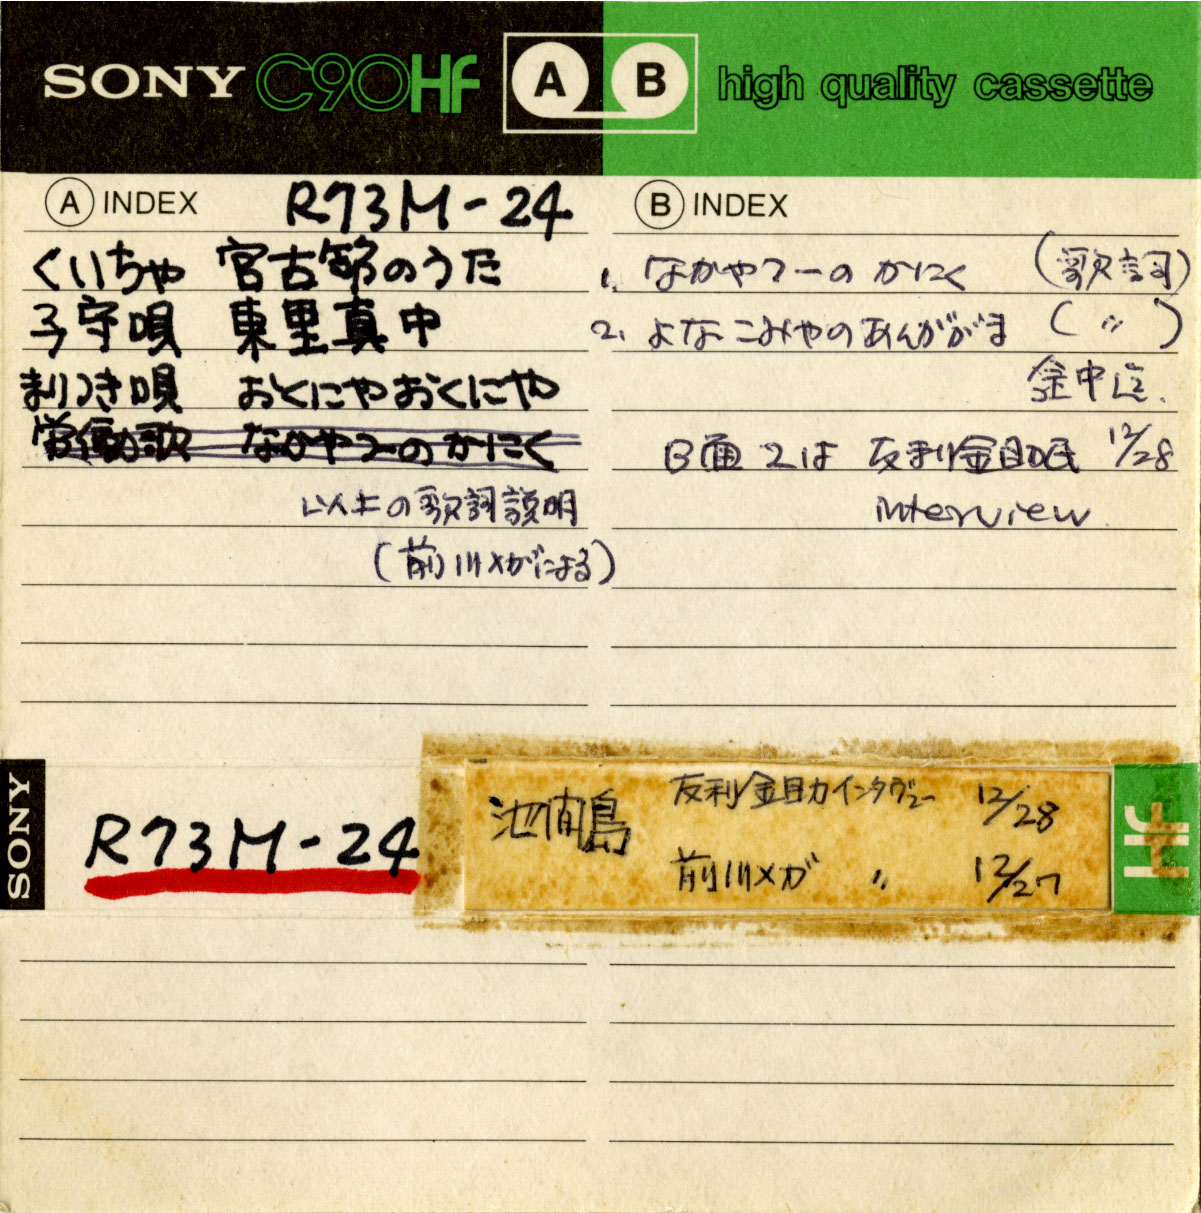 SONY C90HF A B high quality cassette
A INDEX R73M-24
くいちゃ 宮古節のうた
子守唄 東里真中
まりつき唄 おくにやおくにや
労働歌 なかやつーのかにく
以上の歌詞説明
(前川メガによる)
B INDEX
1. なかやつーのかにく (歌詞)
2. よなこみやのあんががま ( 〃 )
B面2は 友利金目カ氏 12/28
interview
SONY
R73M-24
池間島
友利金目カインタヴュー 12/28
前川メガ 〃 12/27
HF